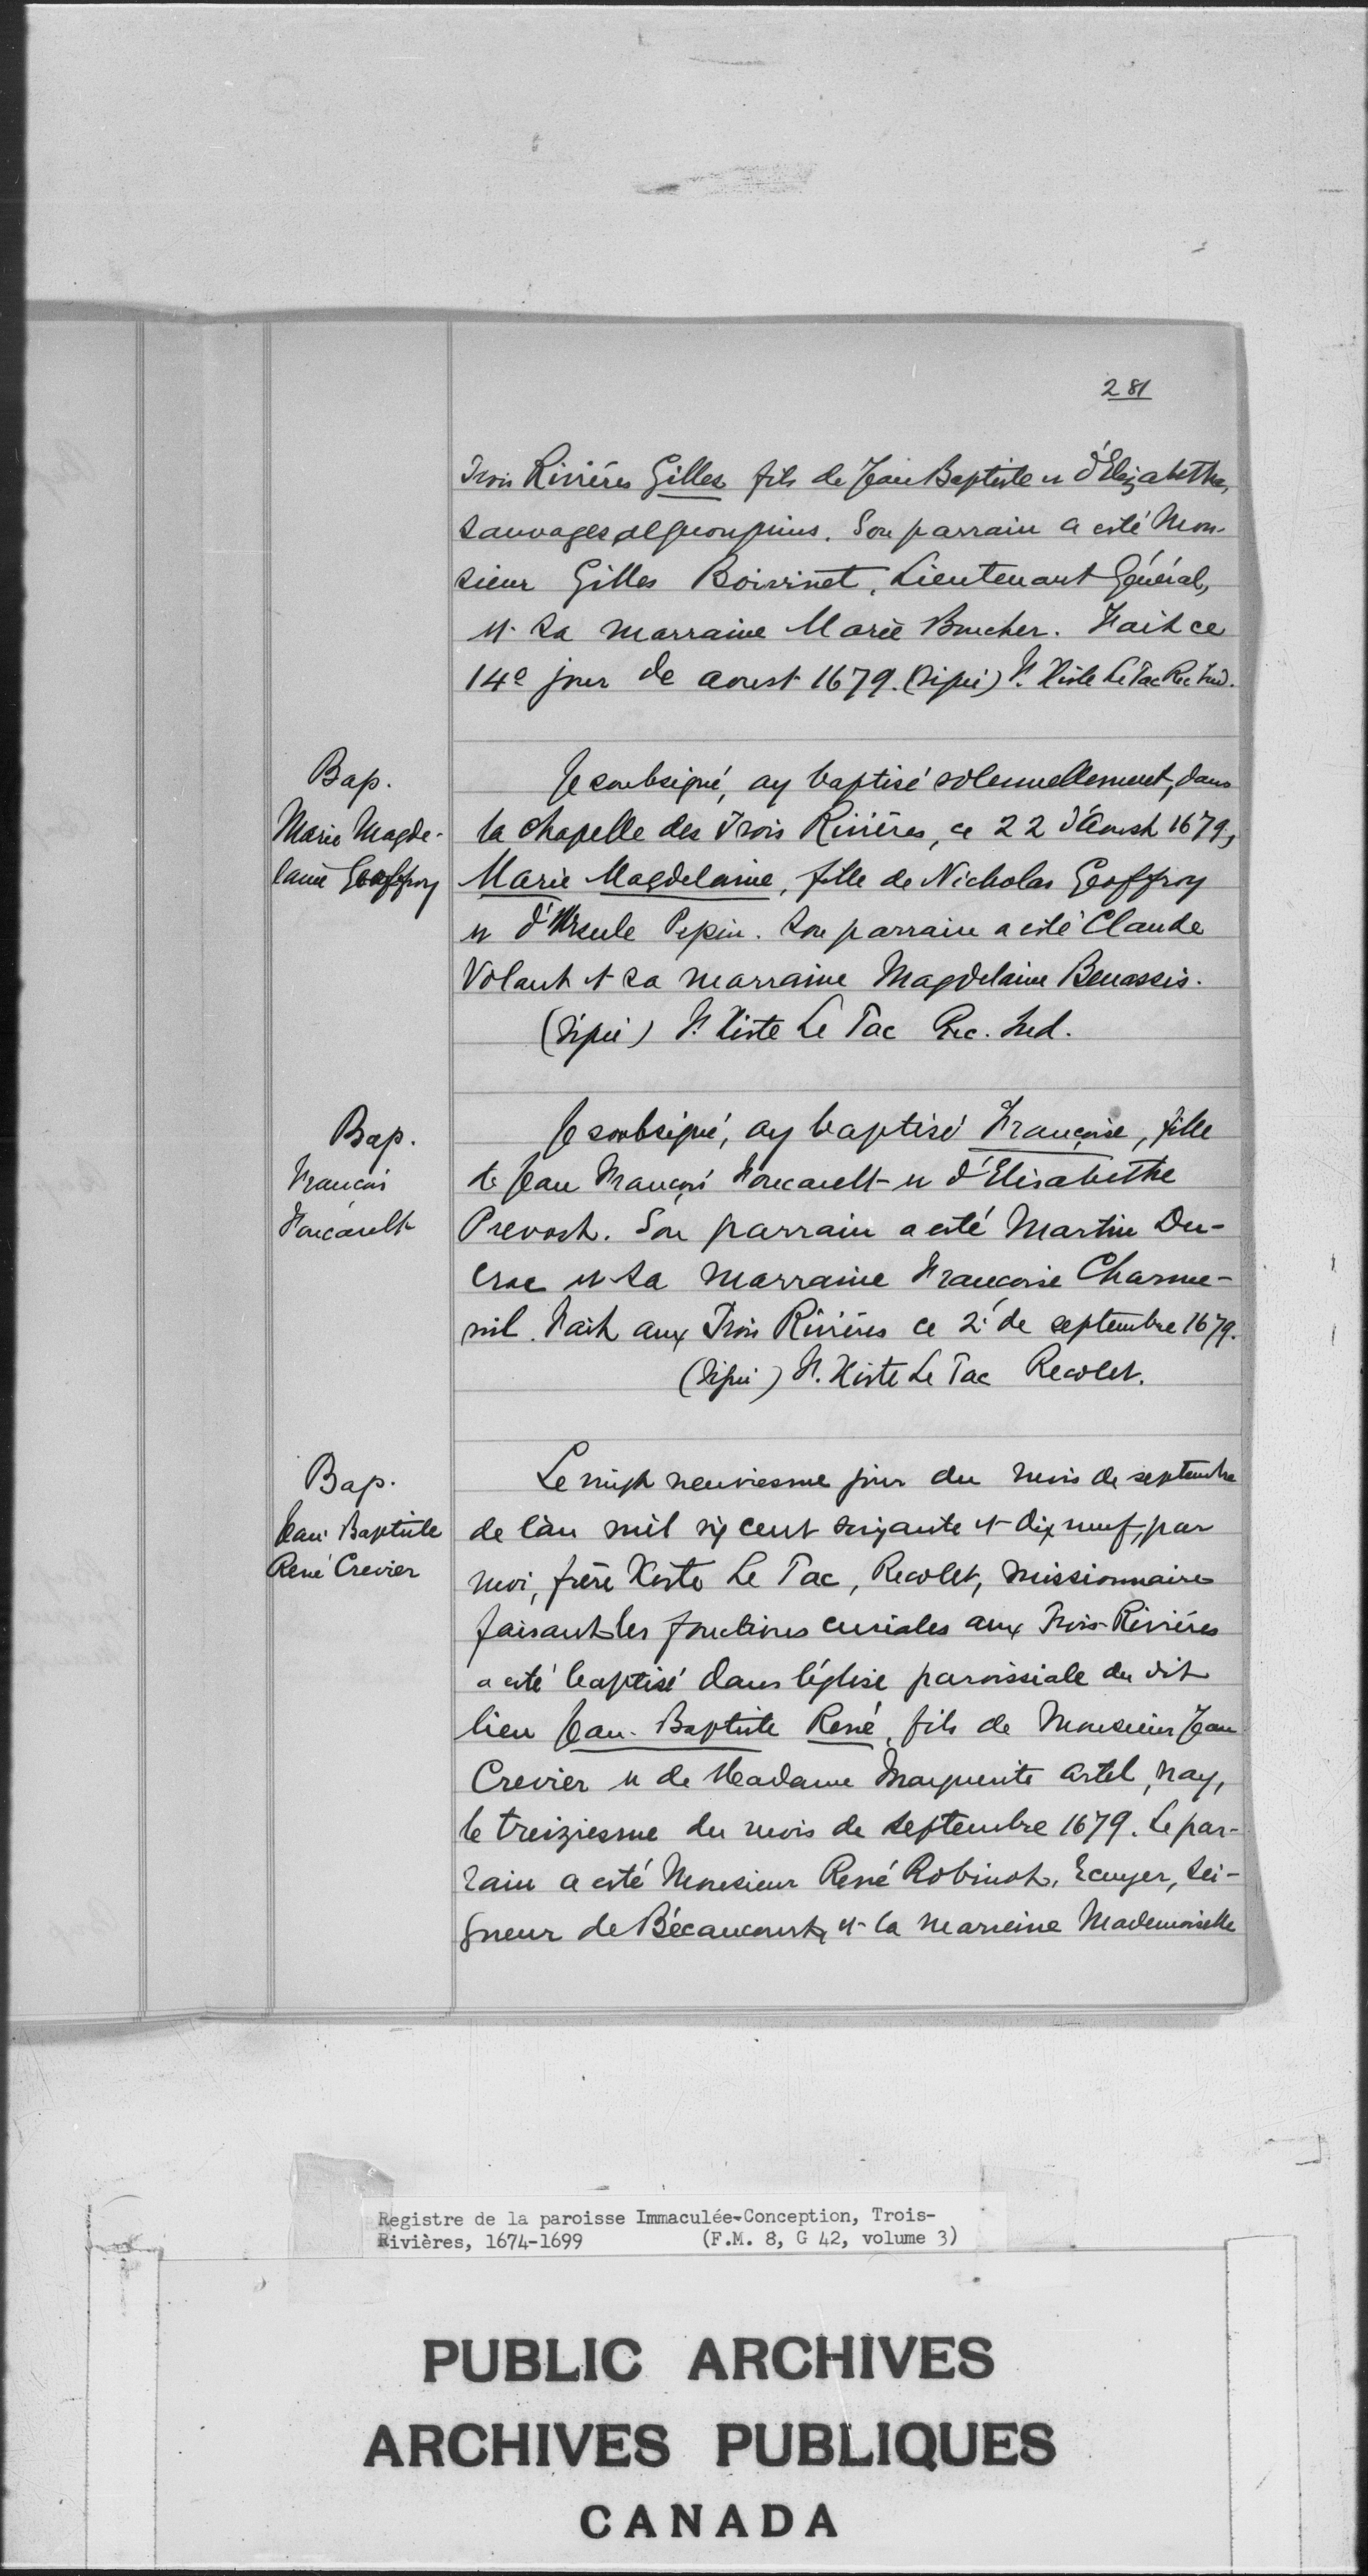 281
Trois Rivières Gilles fils de Jean Baptiste et d'Elizabethe,
sauvages algonquins. Son parrain a esté Mon-
sieur Gilles Boivinet, Lieutenant Général,
et sa marraine Marie Boucher. Fait ce
14e jour de aoust 1679. (Signé) F. Xiste Le Tac Rec. Ind.
Bap.
Marie Magde-
laine Geoffroy
Je soubsigné, ay baptisé solennellement, dans
la chapelle des Trois Rivières, ce 22 d'Aoust 1679,
Marie Magdelaine, fille de Nicholas Geoffroy
et d'Ursule Pepin. Son parrain a esté Claude
Volant et sa marraine Magdelaine Benassis.
(Signé) F. Xiste Le Tac Rec. Ind.
Bap.
François
Foucault
Je soubsigné, ay baptisé Françoise, fille
de Jean François Foucault et d'Elisabethe
Prevost. Son parrain a esté Martin Du-
croc et sa marraine Françoise Charme-
nil. Fait aux Trois Rivières ce 2e de septembre 1679.
(Signé) F. Xiste Le Tac Recolet.
Bap.
Jean Baptiste
René Crevier
Le vingt neuviesme jour du mois de septembre
de l'an mil six cent soixante et dix neuf, par
moi, frère Xiste Le Tac, Recolet, missionnaire
faisant les fonctions curiales aux Trois-Rivières
a esté baptisé dans l'église paroissiale du dit
lieu Jean-Baptiste René, fils de Monsieur Jean
Crevier et de Madame Marguerite Artel, nay,
le treiziesme du mois de septembre 1679. Le par-
rain a esté Monsieur René Robinot, Ecuyer, Sei-
gneur de Bécancourt, et la marreine Mademoiselle
Registre de la paroisse Immaculée-Conception, Trois-
Rivières, 1674-1699 (F.M. 8, G 42, volume 3)
PUBLIC ARCHIVES
ARCHIVES PUBLIQUES
CANADA